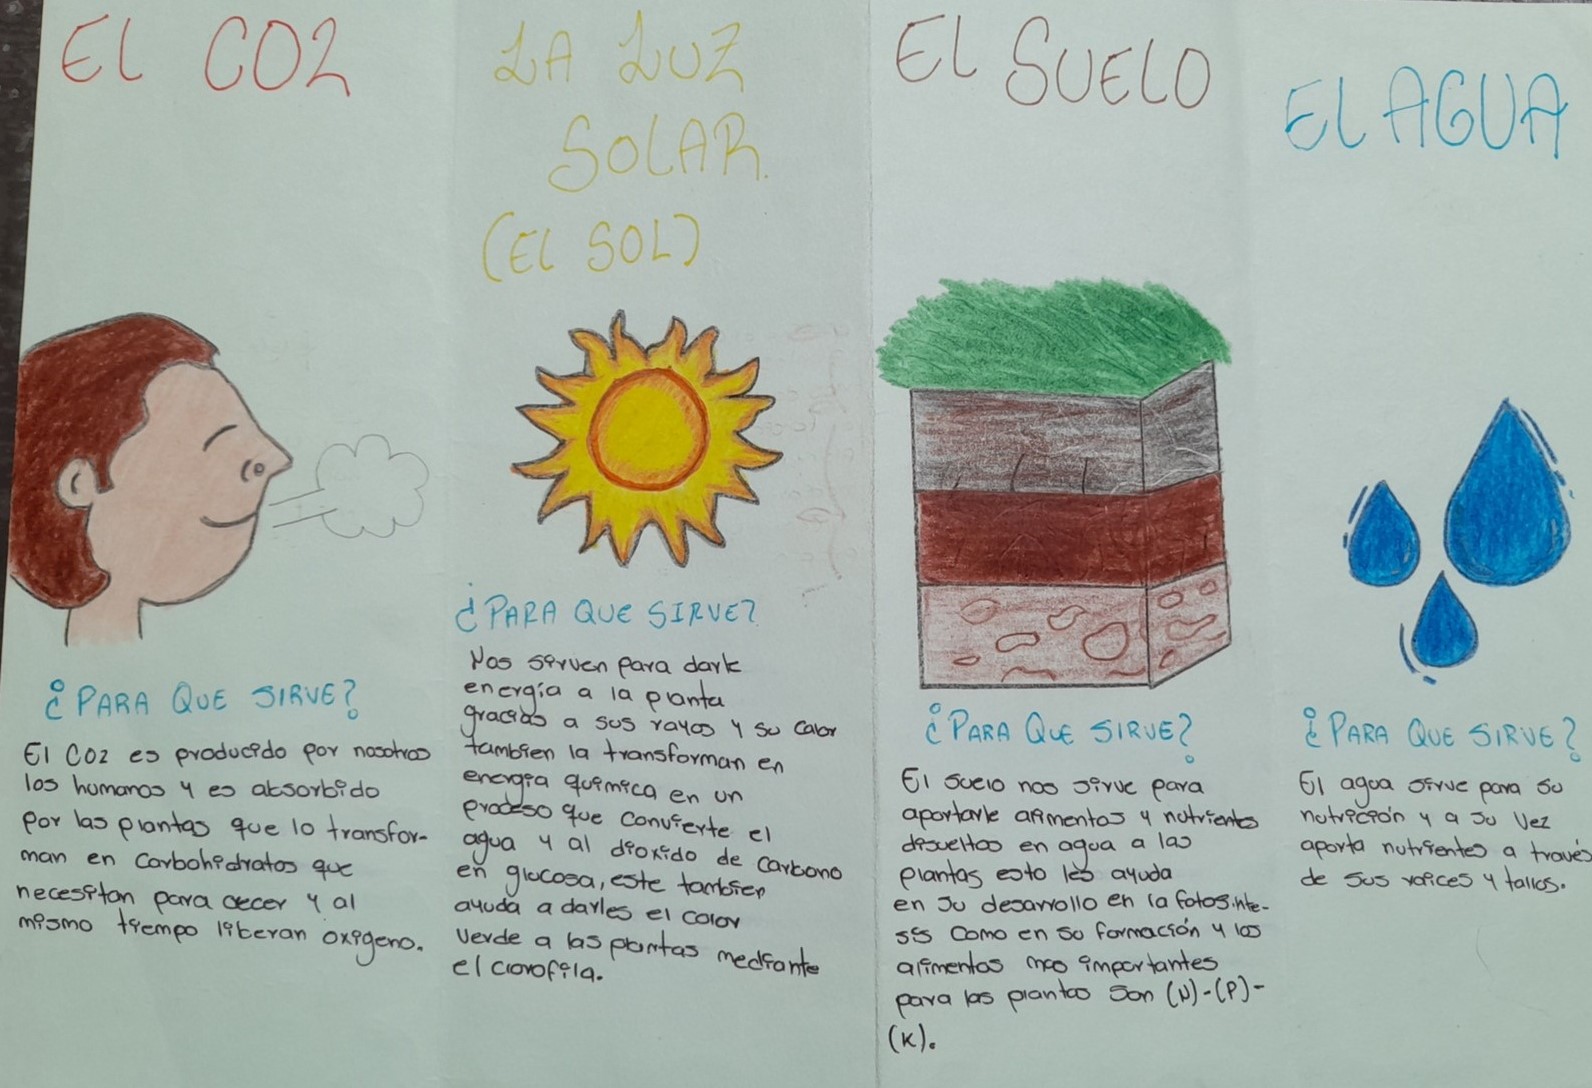 EL CO2
¿PARA QUE SIRVE?
El CO2 es producido por nosotros
los humanos y es absorbido
por las plantas que lo transfor-
man en carbohidratos que
necesitan para crecer y al
mismo tiempo liberan oxigeno.
LA LUZ
SOLAR.
(EL SOL)
¿PARA QUE SIRVE?
Nos sirven para darle
energía a la planta
gracias a sus rayos y su calor
tambien la transforman en
energia quimica en un
proceso que convierte el
agua y al dioxido de carbono
en glucosa, este tambien
ayuda a darles el color
verde a las plantas mediante
el clorofila.
EL SUELO
¿PARA QUE SIRVE?
El suelo nos sirve para
aportarle alimentos y nutrientes
disueltos en agua a las
plantas esto les ayuda
en su desarrollo en la fotosinte-
sis como en su formación y los
alimentos mas importantes
para las plantas son (N)-(P)-
(K).
EL AGUA
¿PARA QUE SIRVE?
El agua sirve para su
nutrición y a su vez
aporta nutrientes a través
de sus raices y tallos.